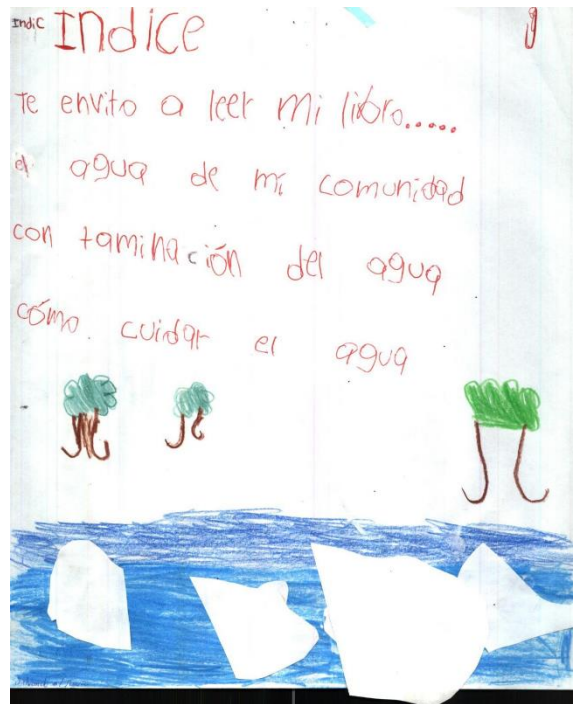 Indic Indice
Te envito a leer mi libro.....
el agua de mi comunidad
con taminación del agua
cómo cuidar el agua